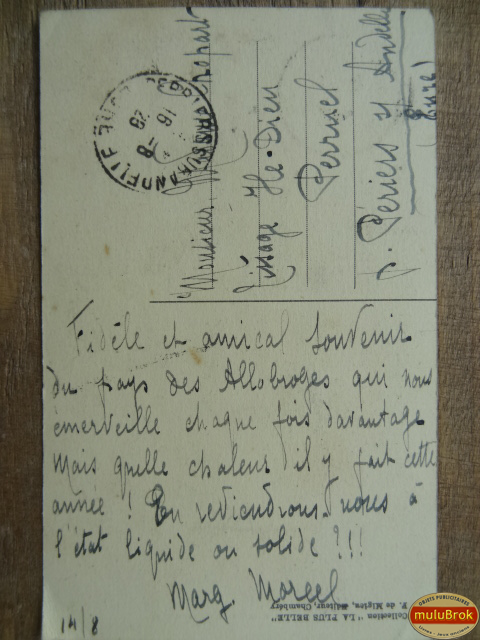 Fidèle et amical souvenir
du pays des Allobroges qui nous
émerveille chaque fois davantage
Mais quelle chaleur il y fait cette
année ! En reviendrons-nous à
l'état liquide ou solide ?!!!
Marg. Marcel
14/8
Monsieur Chopart
Tissage Ile-Dieu
Perruel
p. Périers s/ Andelle
(Eure)
16 -8 28
SUR ANDELLE
Collection "LA PLUS BELLE"
F. de Migieu, éditeur, Chambéry
OBJETS PUBLICITAIRES
muluBrok